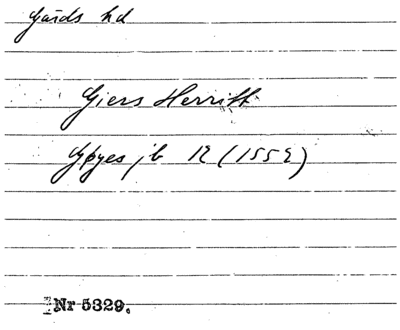 Gärds hd
Giers Herritt
Gøyes jb 12 (1552)
Nr 5329.